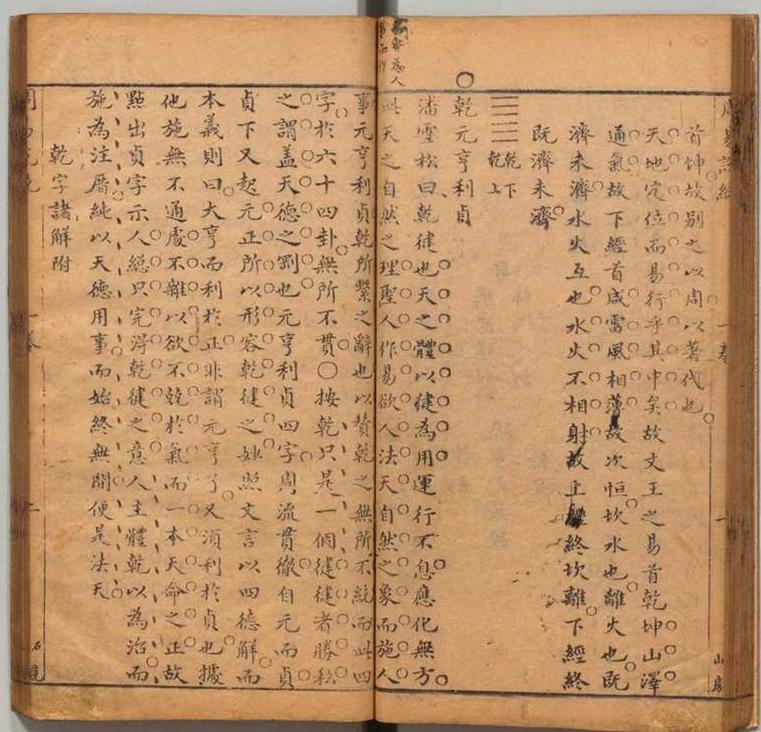 首坤故別之以周以著代也
天地定位而易行乎其中矣故文王之易首乾坤山澤
通氣故下經首咸雷風相薄故次恒坎水也離火也既
濟未濟水火互也水火不相射故上經終坎離下經終
既濟未濟
乾下
乾上
乾元亨利貞
潘雪松曰乾健也天之體以健為用運行不息應化無方
此天之自然之理聖人作易欲人法天自然之象而施人
事元亨利貞乾所繫之辭也以贊乾之無所不統而此四
字於六十四卦無所不貫○按乾只是一個健健者勝私
之謂盖天德之剛也元亨利貞四字周流貫徹自元而貞
貞下又起元正所以形容乾健之妙照文言以四德解而
本義則曰大亨而利於正非謂元亨了又須利於貞也據
他施無不通處不雜以欲不競於氣而一本天命之正故
點出貞字示人總只完得乾健之意人主體乾以為治而
施為注厝純以天德用事而始終無間便是法天
乾字諸解附
一卷
一
山房
二
石鏡